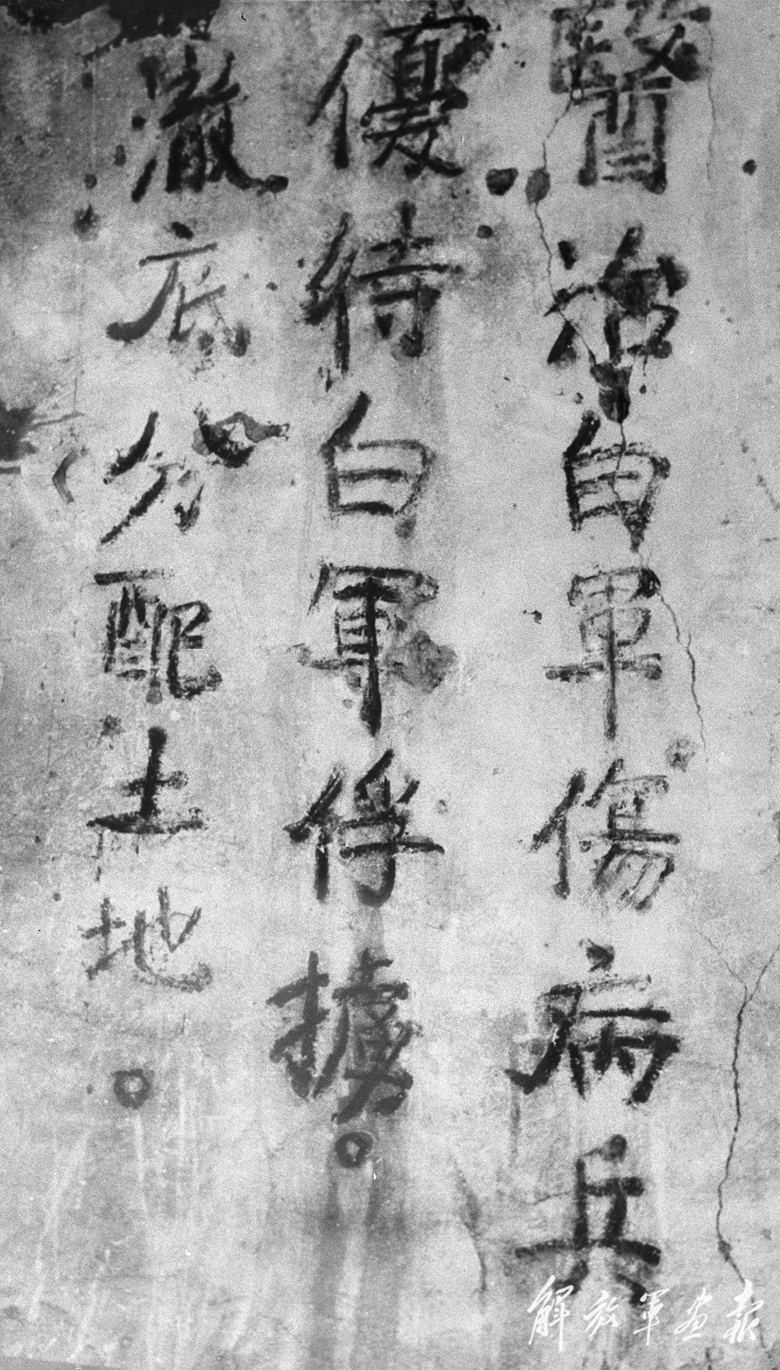 醫治白軍傷病兵
優待白軍俘擄。
澈底分配土地。
解放军画报